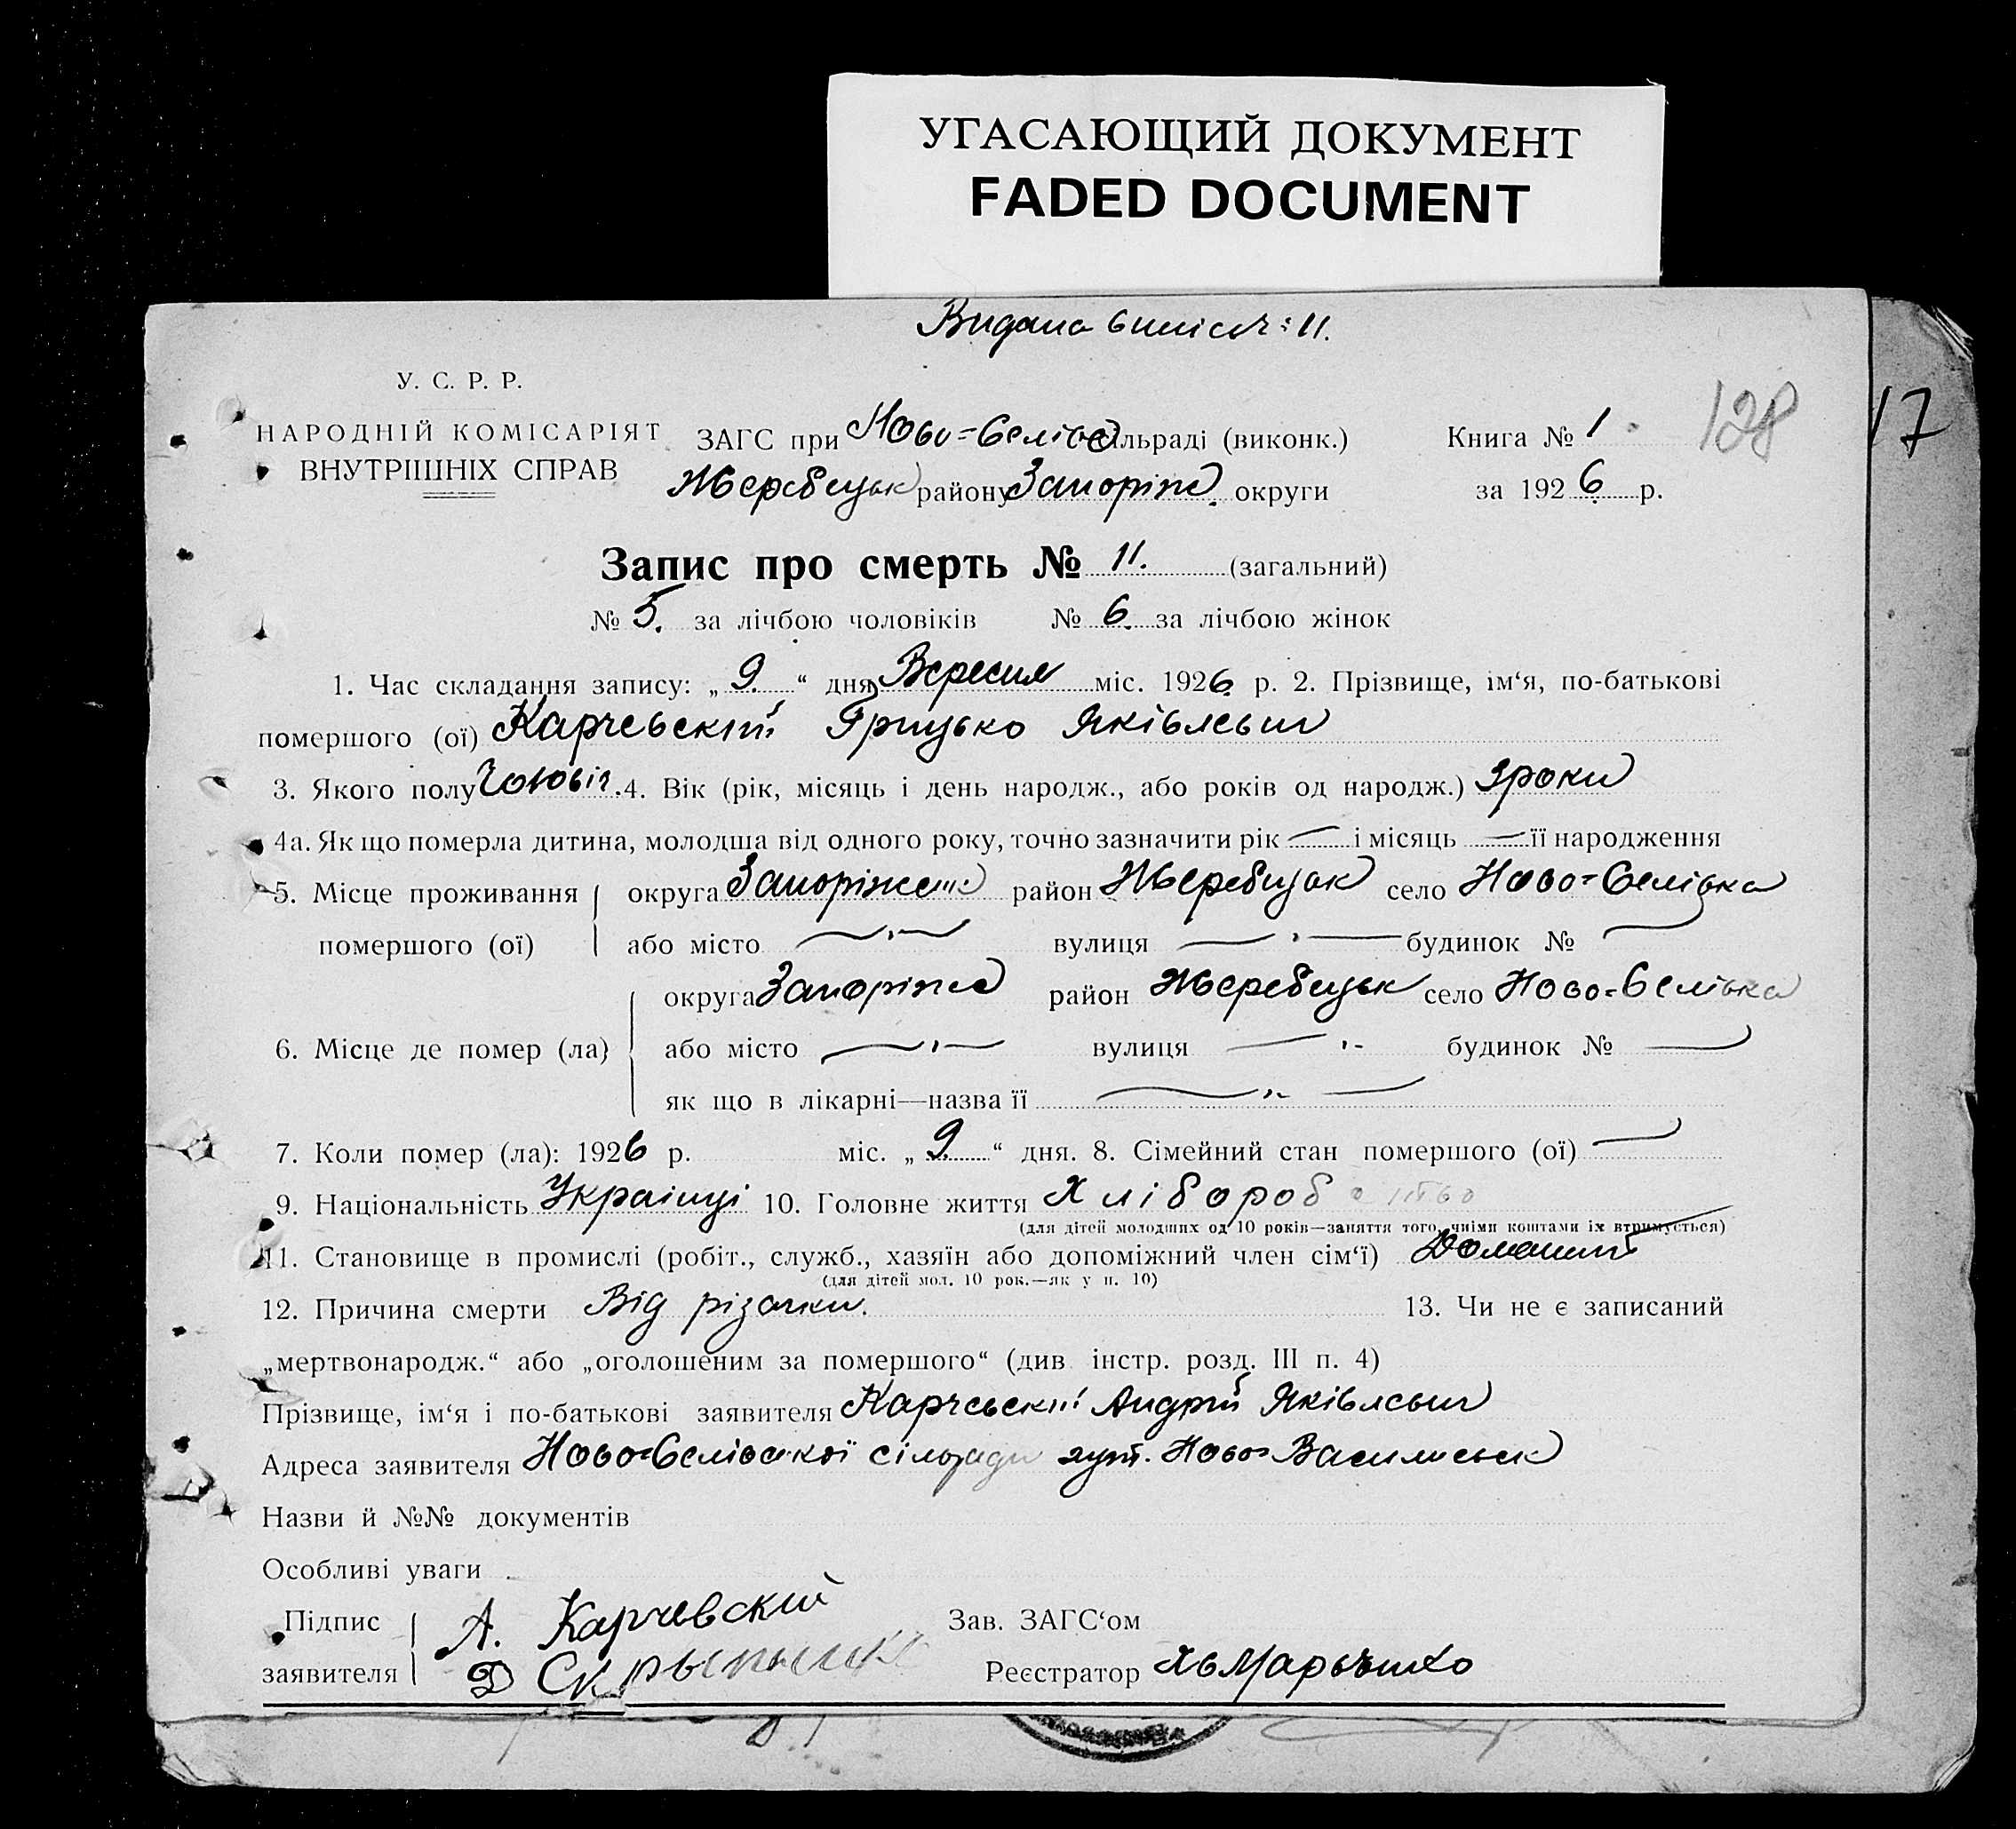 УГАСАЮЩИЙ ДОКУМЕНТ
FADED DOCUMENT
Видана 11.
У. С. Р. Р.
НАРОДНІЙ КОМІСАРІЯТ
ВНУТРІШНІХ СПРАВ
ЗАГС при Ново-Селівс сільраді (виконк.)
Жеребецьк району Запоріж. округи
Книга № 1
за 1926 р.
128
17
Запис про смерть № 11. (загальний)
№ 5. за лічбою чоловіків № 6. за лічбою жінок
1. Час складання запису: „9.“ дня Вересня міс. 1926 р. 2. Прізвище, ім‘я, по-батькові
помершого (ої) Карчевский Грицько Яківлевич
3. Якого полу Чоловіч. 4. Вік (рік, місяць і день народж., або років од народж.) 3 роки
4а. Як що померла дитина, молодша від одного року, точно зазначити рік — і місяць — її народження
5. Місце проживання округа Запоріжськ район Жеребецьк село Ново-Селівка
помершого (ої) або місто — „ — вулиця — „ — будинок № —
округа Запоріжс район Жеребецьк село Ново-Селівка
6. Місце де помер (ла) або місто — „ — вулиця — „ - будинок № —
як що в лікарні—назва її — „ —
7. Коли помер (ла): 1926 р. міс. „9.“ дня. 8. Сімейний стан помершого (ої) —
9. Національність Українці 10. Головне життя Хліборобство
(для дітей молодших од 10 років—заняття того, чиїми коштами їх втримується)
11. Становище в промислі (робіт., служб., хазяїн або допоміжний член сім‘ї) Домашній
(для дітей мол. 10 рок.—як у п. 10)
12. Причина смерти Від різачки. 13. Чи не є записаний
„мертвонародж.“ або „оголошеним за помершого“ (див. інстр. розд. III п. 4)
Прізвище, ім‘я і по-батькові заявителя Карчевский Андрій Яківлевич
Адреса заявителя Ново-Селівської сільради хут. Ново-Василівськ
Назви й №№ документів
Особливі уваги
Підпис А. Карчевский Зав. ЗАГС‘ом
заявителя Д Реєстратор